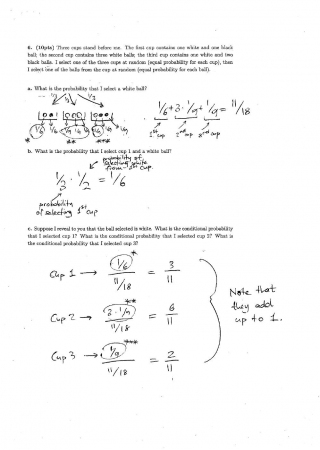 6. (10pts) Three cups stand before me. The first cup contains one white and one black
ball; the second cup contains three white balls; the third cup contains one white and two
black balls. I select one of the three cups at random (equal probability for each cup), then
I select one of the balls from the cup at random (equal probability for each ball).
a. What is the probability that I select a white ball?
1/3 1/3 1/3
1/6 + 3·1/9 + 1/9 = 11/18
1/6 1/6 1/9 1/9 1/9 1/9 1/9
1st cup 2nd cup 3rd cup
* ** ***
b. What is the probability that I select cup 1 and a white ball?
probability of
selecting white
from 1st cup.
1/3 · 1/2 = 1/6
probability
of selecting 1st cup
c. Suppose I reveal to you that the ball selected is white. What is the conditional probability
that I selected cup 1? What is the conditional probability that I selected cup 2? What is
the conditional probability that I selected cup 3?
Cup 1 → (1/6)* / 11/18 = 3/11
Cup 2 → (3·1/9)** / 11/18 = 6/11
Cup 3 → (1/9)*** / 11/18 = 2/11
Note that
they add
up to 1.